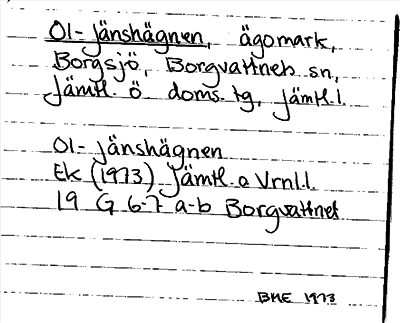 Ol-jänshägnen, ägomark,
Borgsjö, Borgvattnets sn,
Jämtl. ö doms. tg, Jämtl. l.
Ol-jänshägnen
Ek (1973) Jämtl. o Vrnl. l.
19 G 6-7 a-b Borgvattnet
BME 1973